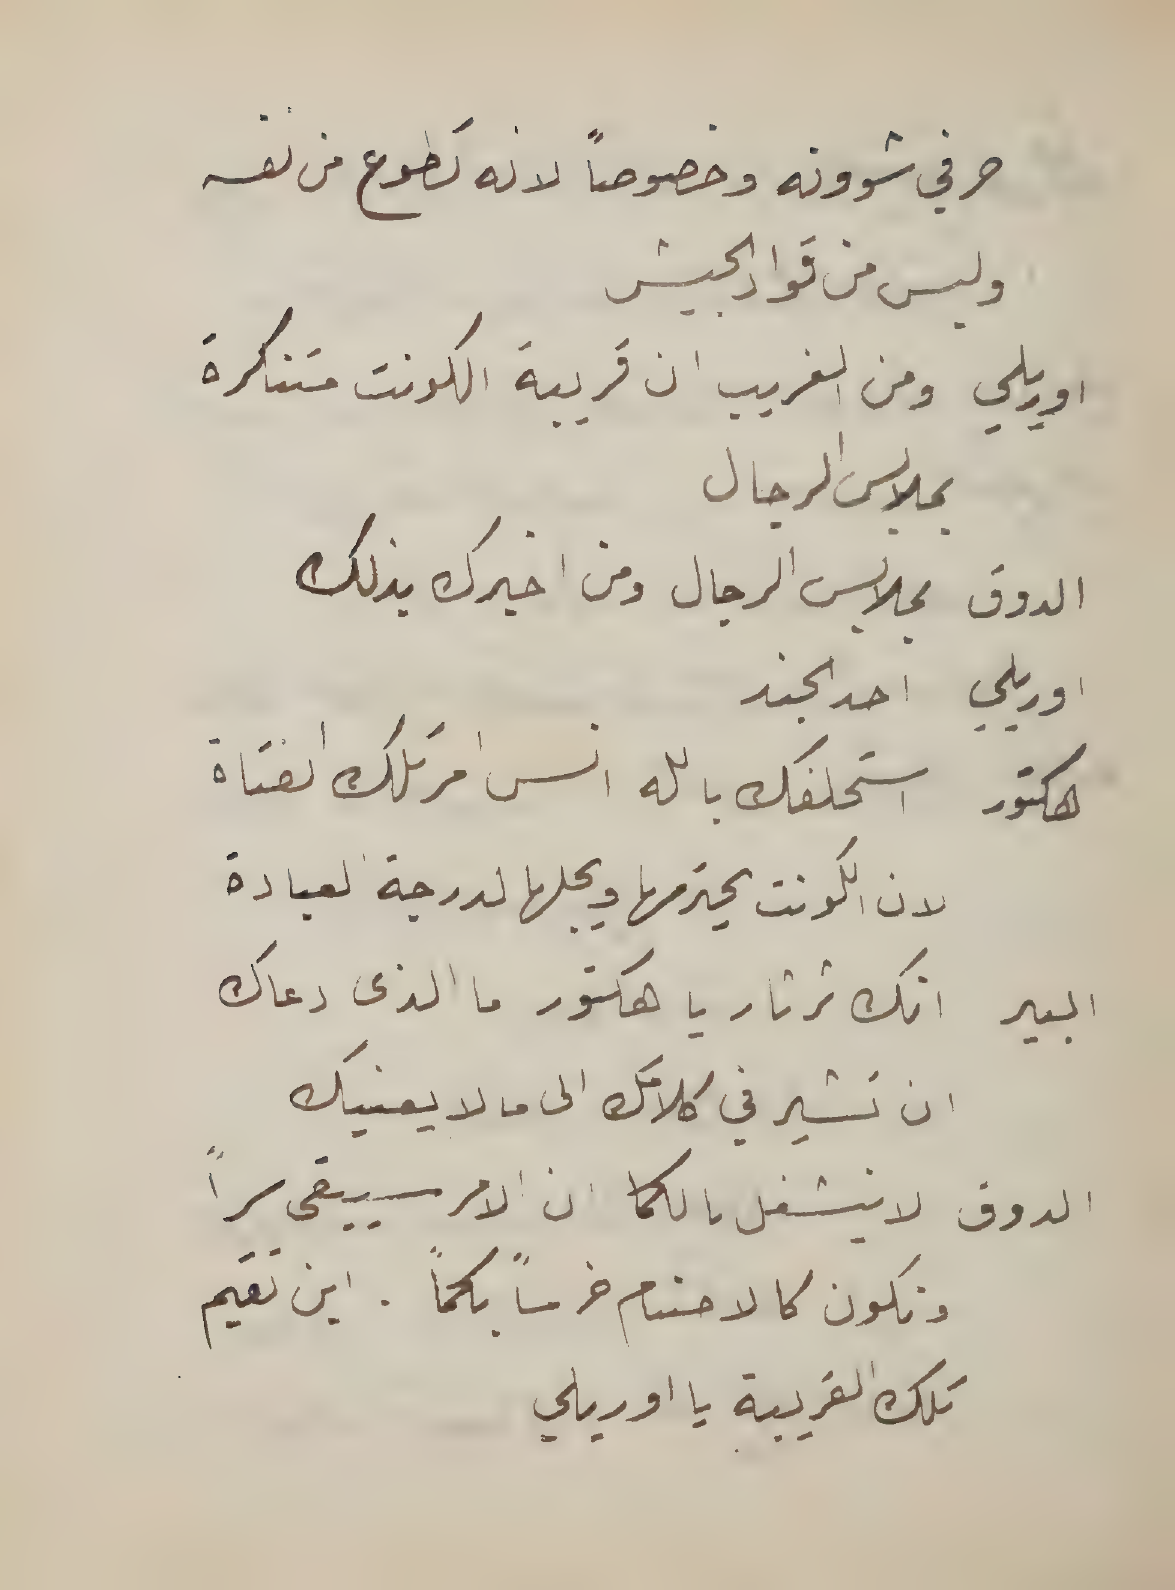 حر في شوونه وخصوصاً لانه تطوع من نفسه
وليس من قواد الجيش
اوريلي ومن الغريب ان قريبة الكونت متناكرة
بملابس الرجال
الدوق بملابس الرجال ومن اخبرك بذلك
اوريلي احد الجند
هكتور استحلفك بالله انس امر تلك الفتاة
لان الكونت يحترمها ويجلها لدرجة العبادة
البير انك ثرثار يا هكتور ما الذى دعاك
ان تشير في كلامك الى ما لا يعنيك
الدوق لا ينشغل بالكما ان الامر سيبقى سراً
ونكون كالاصنام خرساً بكماً . اين تقيم
تلك القريبة يا اوريلي